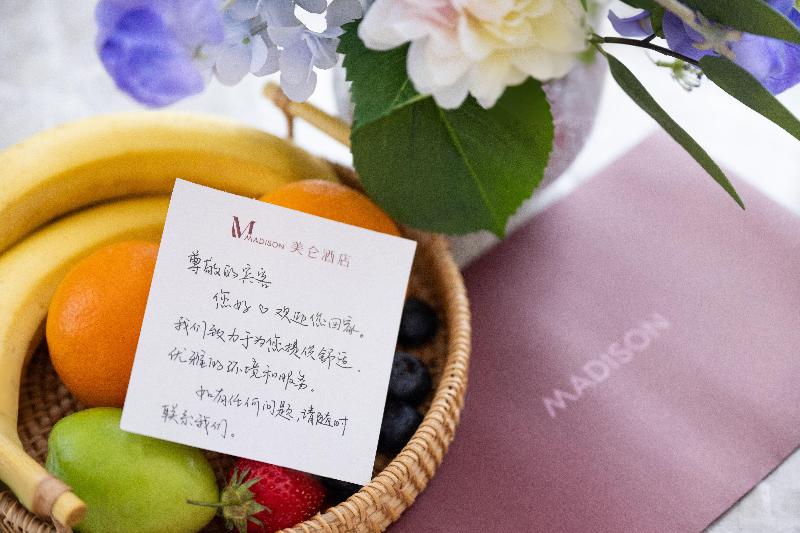 MADISON 美仑酒店
尊敬的宾客
您好♡欢迎您回家。
我们致力于为您提供舒适、
优雅的环境和服务。
如有任何问题,请随时
联系我们。
MADISON